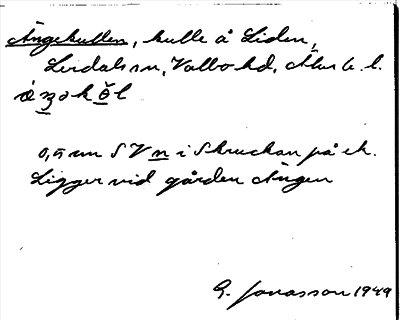 Ängekullen, kulle å Liden,
Lerdals sn, Valbo hd, Älvsb. l.

0,5 mm SV n i Skruckan på ek.
Ligger vid gården Ängen
G. Jonasson 1949